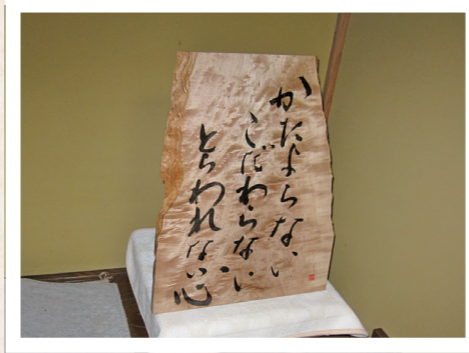 かたよらない
こだわらない
とらわれない心